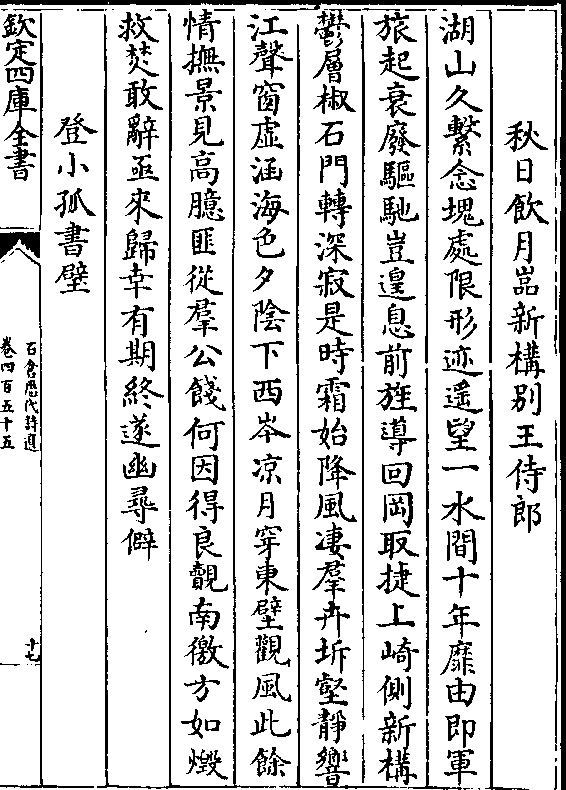 秋日飲月嵓新構別王侍郎
湖山久繫念塊處限形迹遥望一水間十年靡由即軍
旅起衰廢驅馳豈遑息前旌導回岡取捷上崎側新構
鬱層椒石門轉深寂是時霜始降風凄羣卉坼壑靜響
江聲窗虚涵海色夕陰下西岑凉月穿東壁觀風此餘
情撫景見高臆匪從羣公餞何因得良覿南徼方如燬
救焚敢辭亟來歸幸有期終遂幽尋僻
登小孤書壁
欽定四庫全書
石倉歷代詩選
卷四百五十五
十七